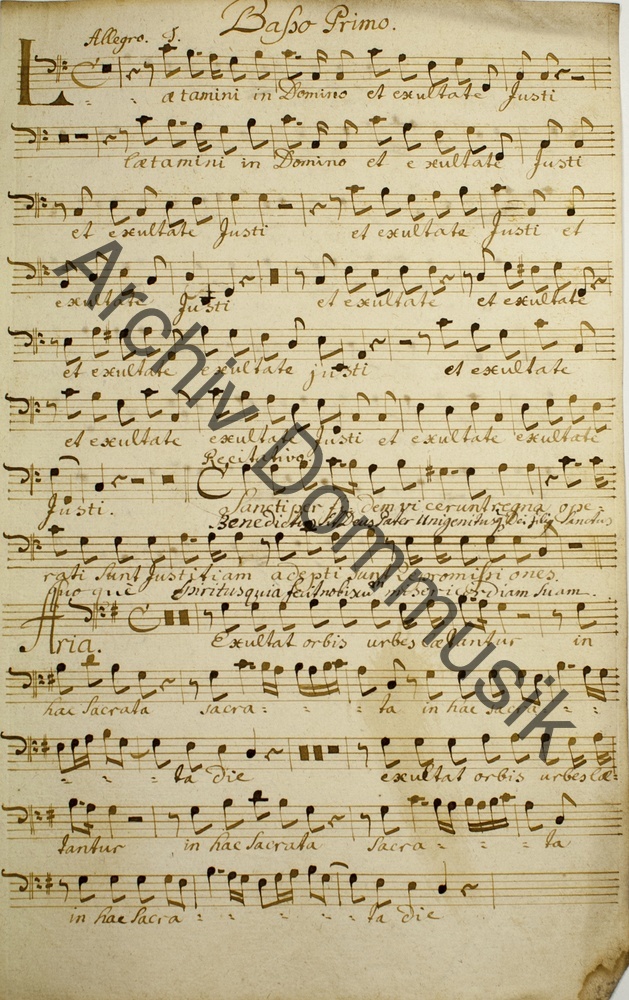 Basso Primo.
Allegro.
Lætamini in Domino et exultate Justi
lætamini in Domino et exultate Justi
et exultate Justi et exultate Justi et
exultate Justi et exultate et exultate
et exultate exultate justi et exultate
et exultate exultate Justi et exultate exultate
Recitativo
Justi. Sancti per fidem vicerunt regna ope-
Benedictus sit Deus Pater Unigenitusq Dei filius Sanctus
rati sunt Justitiam adepti sunt repromissiones.
quoque Spiritus quia fecit nobiscum misericordiam suam.
Aria. Exultat orbis urbes lætantur in
hac Sacrata sacra - - ta in hac sacra - -
- - - ta die exultat orbis urbes læ-
tantur in hac Sacrata Sacra - - - ta
in hac Sacra - - - - - ta die
Archiv Dommusik